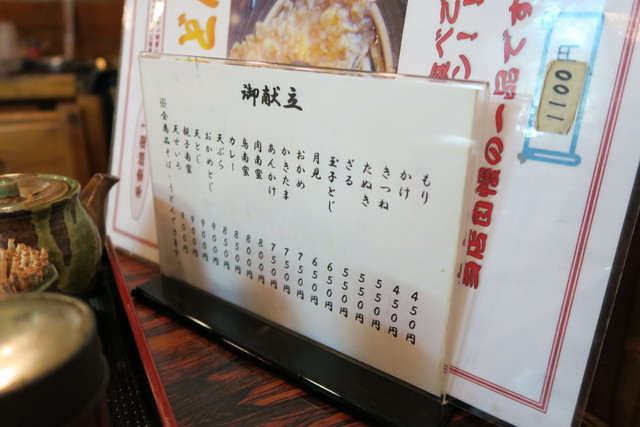 御献立
もり 450円
かけ 450円
きつね 550円
たぬき 550円
ざる 550円
玉子とじ 650円
月見 650円
おかめ 700円
かきたま 750円
あんかけ 750円
肉南蛮 800円
鳥南蛮 800円
カレー 850円
天ぷら 850円
おかめとじ 900円
天とじ 900円
親子南蛮 900円
天せいろ 900円
※全商品そば、うどんできます。
当店自慢の一品です
1100円